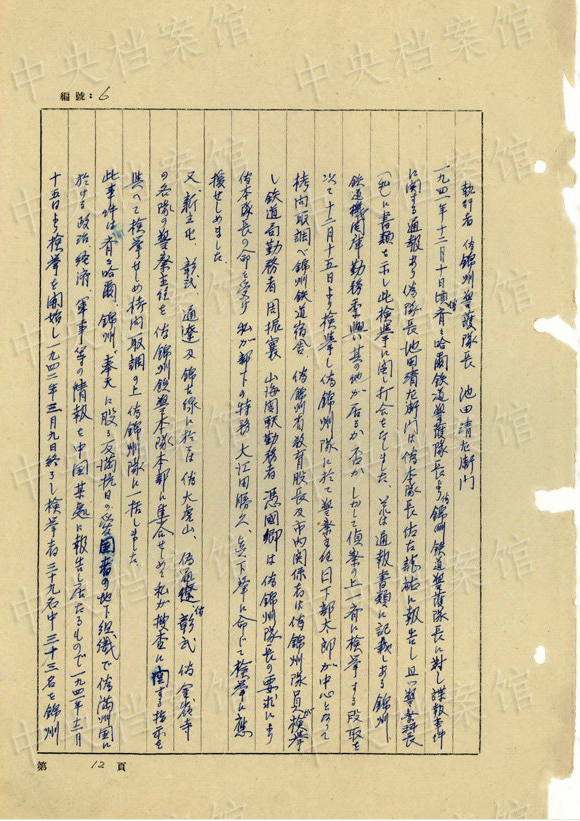 編號：6
執行者　偽錦州警護隊長　池田清左衛門
一九四一年十二月十日頃斉々哈爾鉄道警護隊長より偽錦州鉄道警護隊長に対し諜報事件
に関する通報あり偽隊長池田清左衛門は偽本隊長佐古龍祐に報告し且つ警務科長
(私)に書類を示し此検挙に関し打合をなしました、それは通報書類に記載しある錦州
鉄道機関庫勤務 其の他が居るか否か、しかして偵察の上一斉に検挙する段取を
以て十二月十五日より検挙し偽錦州隊に於て警務主任日下部太郎が中心となって
拷問取調べ錦州鉄道宿舎、偽錦州省教育股長及市内関係者は偽錦州隊員が検挙
し鉄道局勤務者周振寰　山海関駅勤務者馮國卿は偽錦州隊長の要求により
偽本隊長の命を受け私が部下の特務大江田勝 部下 に命じて検挙に応
援せしめました
又新立屯　彰武　通遼及錦古線に於る偽大虎山、偽通遼、偽彰武、偽金嶺寺
の各隊の警務主任を偽錦州鉄警本隊本部に集合せしめて私が捜査に関する指示を
與へて検挙せしめ拷問取調の上偽錦州隊に一括しました、
此事件は斉々哈爾、錦州、奉天に股る反満抗日の愛国者の地下組織で偽満州国に
於ける政治経済、軍事等の情報を中国共産に報告し居たるもので一九四一年十二月
十五日より検挙を開始し一九四二年三月九日終了し検挙者三十九名中三十三名を錦州
第　12　頁
中央档案馆